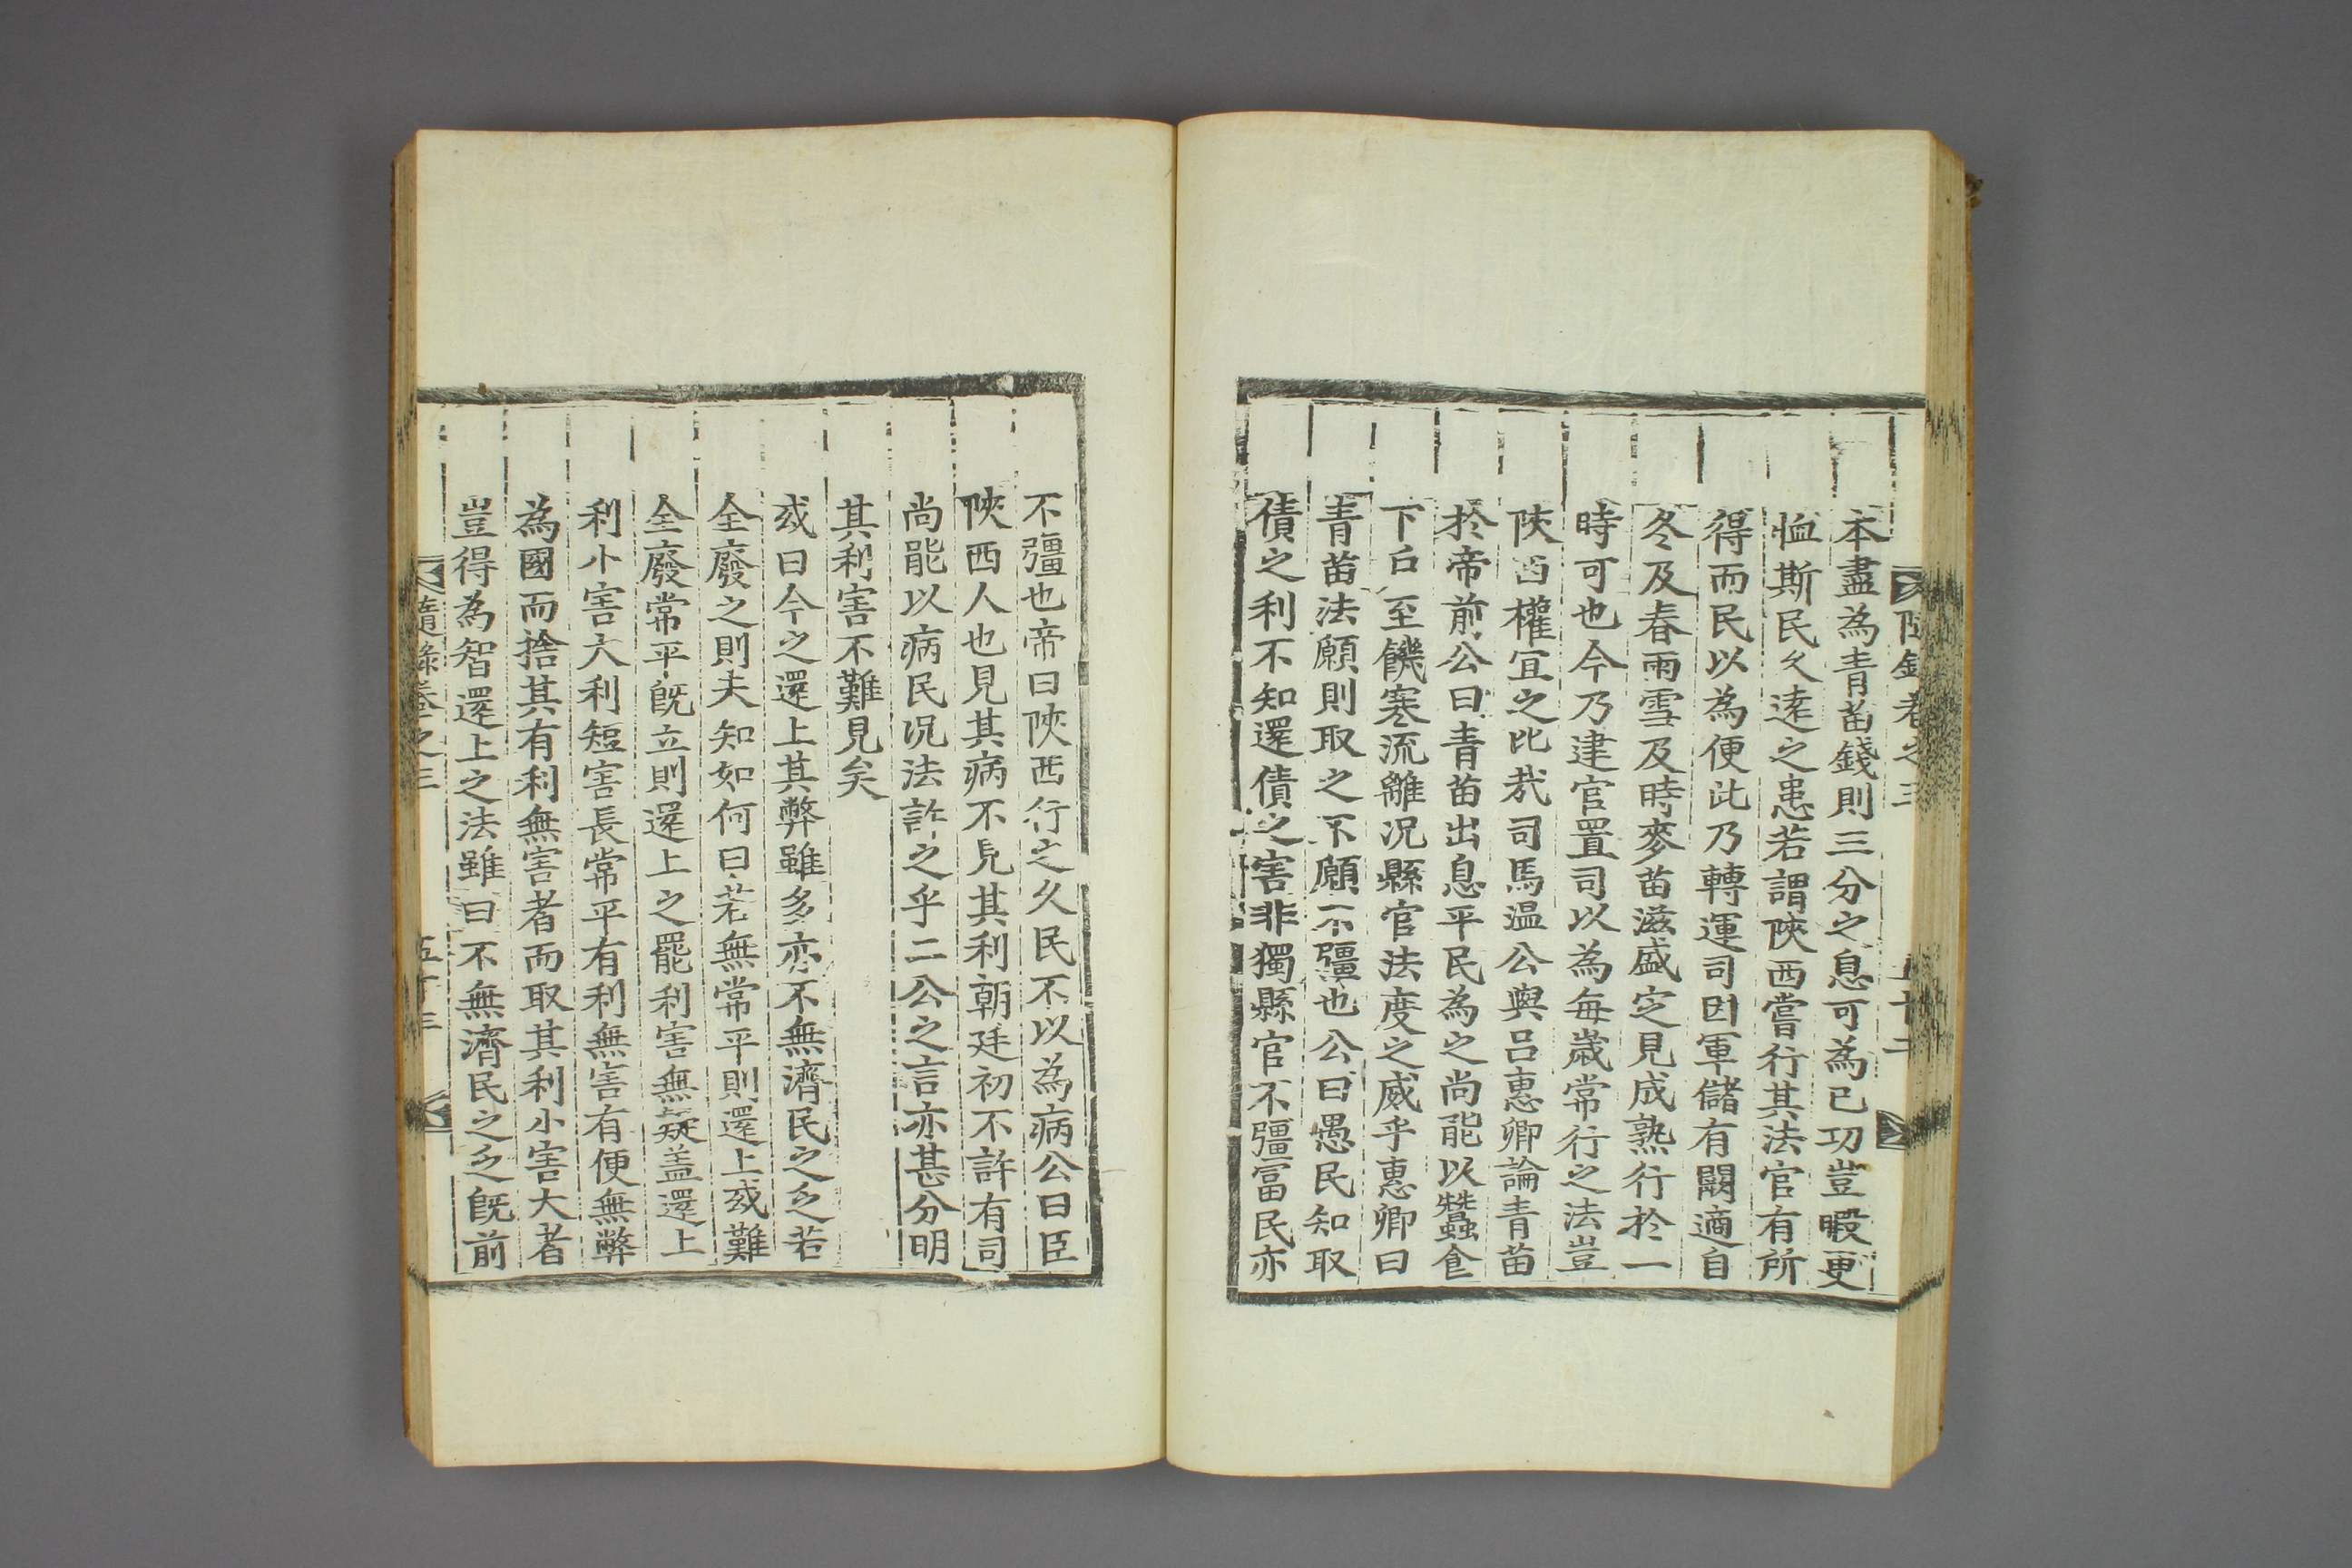 隨錄卷之三
五十二
本盡為青苗錢則三分之息可為已功豈暇更
恤斯民久遠之患若謂陜西嘗行其法官有所
得而民以為便此乃轉運司因軍儲有闕適自
冬及春雨雪及時麥苗滋盛㝎見成熟行於一
時可也今乃建官置司以為每歲常行之法豈
陜西權冝之比㦲司馬温公與呂惠卿論青苗
於帝前公曰青苗出息平民為之尚能以蠶食
下戶至饑寒流離况縣官法度之威乎惠卿曰
青苗法願則取之不願不彊也公曰愚民知取
債之利不知還債之害非獨縣官不彊冨民亦
不彊也帝曰陜西行之久民不以為病公曰臣
陜西人也見其病不見其利朝廷初不許有司
尚能以病民况法許之乎二公之言亦甚分明
其利害不難見矣
或曰今之還上其弊雖多亦不無濟民之乏若
全廢之則未知如何曰若無常平則還上或難
全廢常平旣立則還上之罷利害無疑盖還上
利小害大利短害長常平有利無害有便無弊
為國而捨其有利無害者而取其利小害大者
豈得為智還上之法雖曰不無濟民之乏旣前
隨錄卷之三
五十三